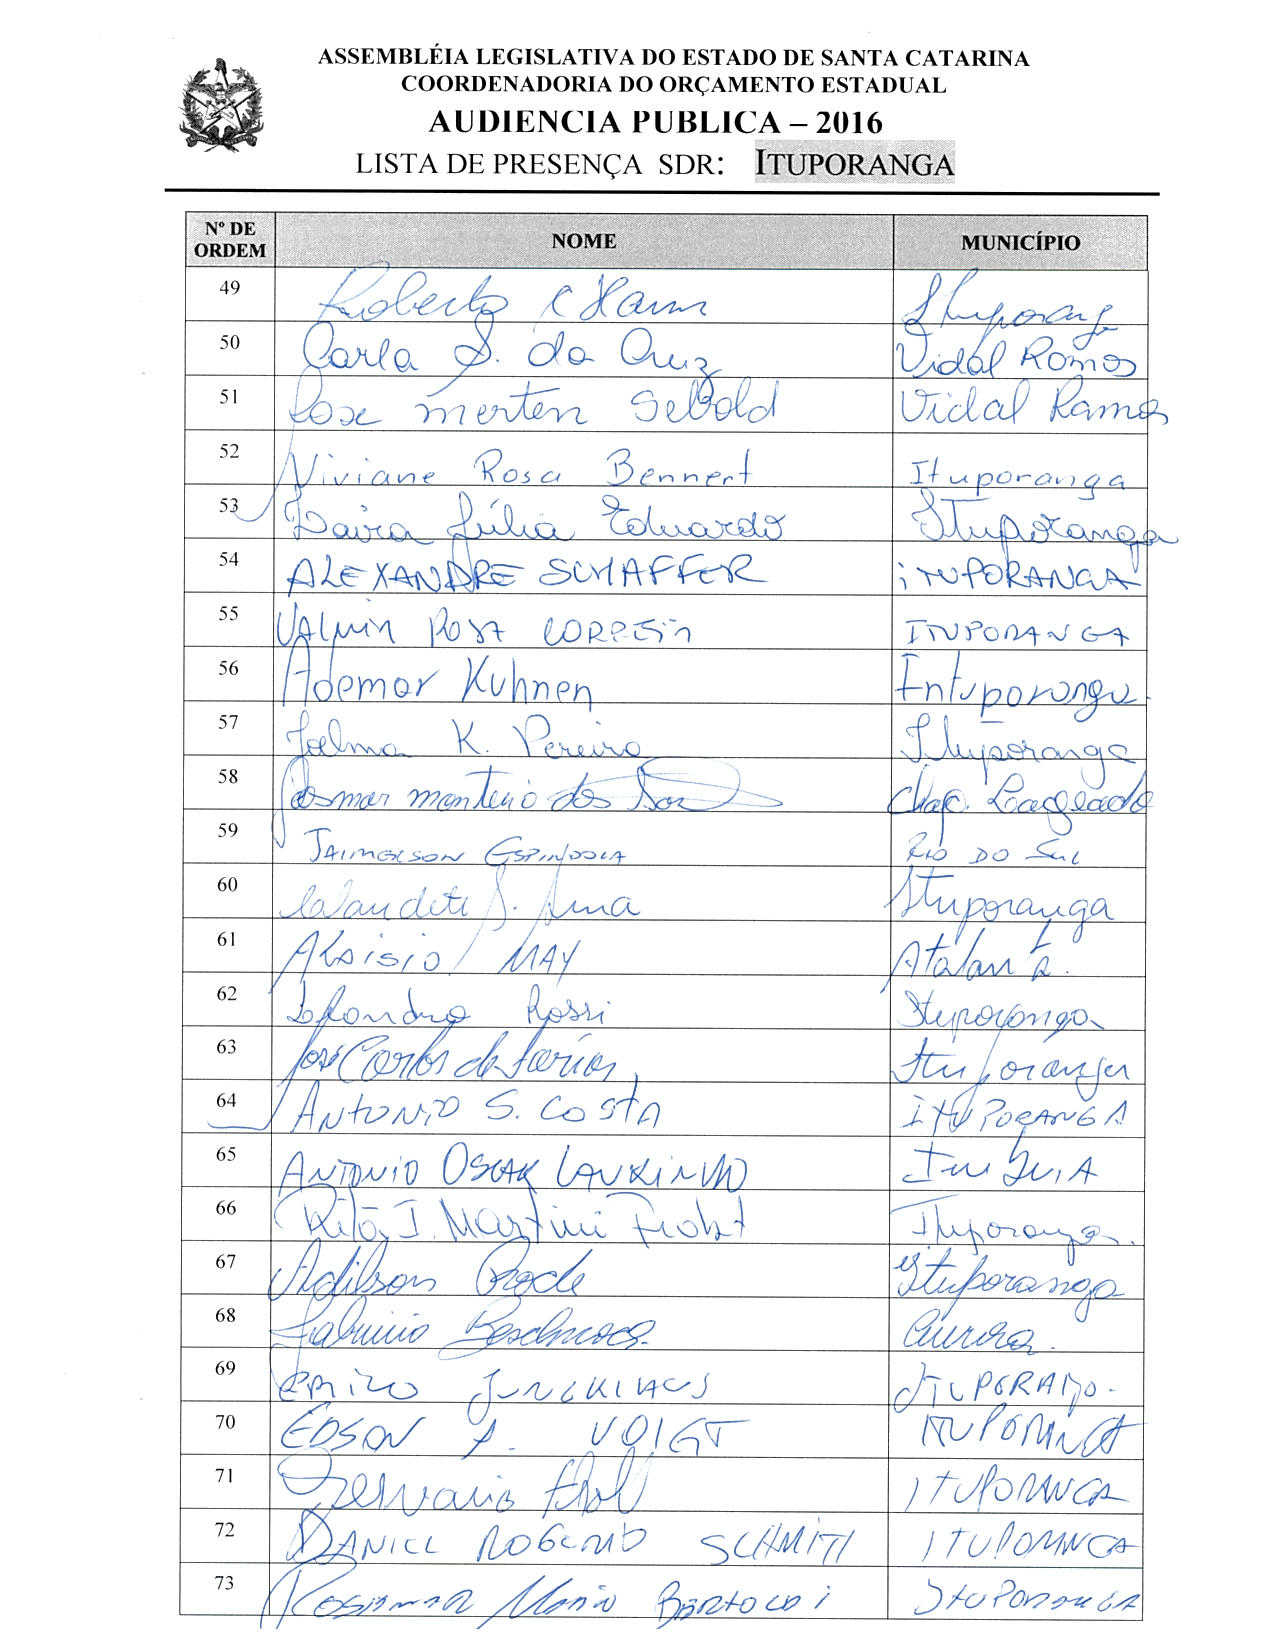 ASSEMBLÉIA LEGISLATIVA DO ESTADO DE SANTA CATARINA
COORDENADORIA DO ORÇAMENTO ESTADUAL
AUDIENCIA PUBLICA – 2016
LISTA DE PRESENÇA SDR: ITUPORANGA
Nº DE ORDEM NOME MUNICÍPIO
49 Roberto Ituporanga
50 Carla S. da Cruz Vidal Ramos
51 Rose Merten Sebold Vidal Ramos
52 Viviane Rosa Bennert Ituporanga
53 Júlia Eduardo Ituporanga
54 ALEXANDRE SCHAFFER ITUPORANGA
55 VALMIR ROSA CORREIA ITUPORANGA
56 Ademar Kuhnen Intuporanga
57 Joelma K. Pereira Ituporanga
58 Osmar monteiro dos Chap. Lageado
59 JAIMELSON ESPINDOLA RIO DO SUL
60 S. Ituporanga
61 ALOISIO MAY Atalanta
62 Rossi Ituporanga
63 José Carlos de Farias Ituporanga
64 ANTONIO S. COSTA ITUPORANGA
65 ANTONIO OSCAR LAURINDO
66 Rita J. Martini Ituporanga.
67 Adilson Ituporanga
68 Fabricio Aurora.
69
70 EDSON A. VOIGT ITUPORANGA
71 ITUPORANGA
72 DANIEL ROGERIO SCHMITT ITUPORANGA
73 BERTOLDI ITUPORANGA